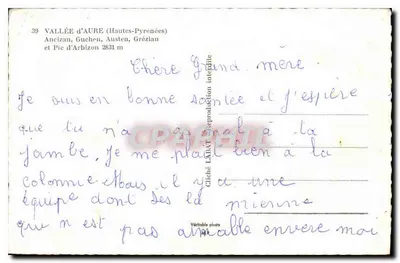 39 VALLÉE d'AURE (Hautes-Pyrénées)
Ancizan, Guchen, Austen, Grézian
et Pic d'Arbizon 2831 m
Chère Grand mère.
Je suis en bonne santée et j'espère
que tu n'a à ta
jambe. Je me plait bien à la
colonie Mais il y a une
équipe dont ses la mienne
qui n est pas aimable envere moi
CARTE-PRISE.COM
Cliché LAJAT Reproduction interdite
Véritable photo